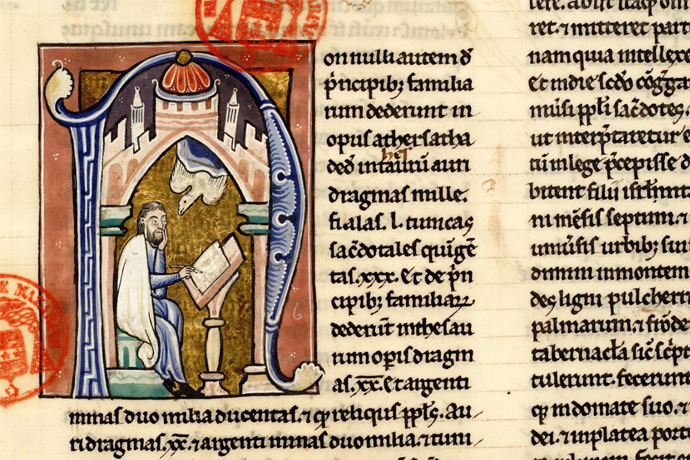 N
on nulli autem de᷒
p̃ncipib; familia
rum dederunt in
opus athersatha
ded̃ intaurũ auri
dragmas mille.
fialas. l. tunicas
sac̃dotales quigẽ
tas. xxx. Et de p̃n
cipib; familiaꝝ
dederũt inthesau
rum op̃is dragm
as. xx̃. & argenti
mnas duo milia ducentas. & qd̃ reliquus ppl̃s. Au
ri dragmas. xx̃. & argenti mnas duo milia. & tuni
ret. & mitteret part
nam quia intellexe
Et in die sc̃do cõg̃ga
ut interp̃taretur e
tũ in lege p̃cepisse d
bitent filii isrl̃ in t
ni mẽsis septimi. &
uniũsis urbib; sui
des ligni pulcherri
palmarum. & frõde
tabernacl̃a sic̃ sc̃pt
tulerunt. fecerunt
in domate suo. &
dei. & in platea porte